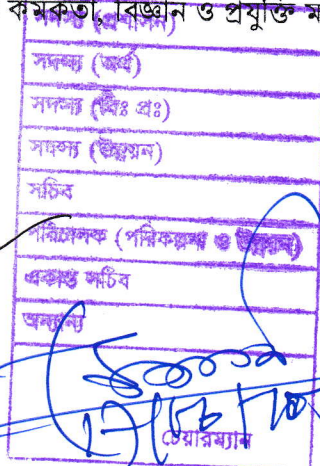 কর্মকর্তা, বিজ্ঞান ও প্রযুক্তি ম
সদস্য (প্রশাসন)
সদস্য (অর্থ)
সদস্য (বিঃ প্রঃ)
সদস্য (উন্নয়ন)
সচিব
পরিচালক (পরিকল্পনা ও উন্নয়ন)
একান্ত সচিব
অন্যান্য
চেয়ারম্যান